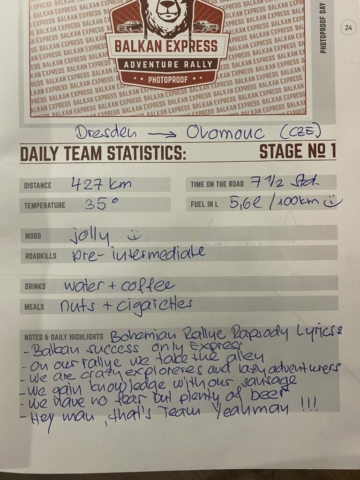 BALKAN EXPRESS
ADVENTURE RALLY
• PHOTOPROOF •
PHOTOPROOF DAY
24
Dresden → Olomouc (CZE)
DAILY TEAM STATISTICS: STAGE Nº 1
DISTANCE 427 km
TIME ON THE ROAD 7 1/2 Std.
TEMPERATURE 35°
FUEL IN L 5,6l / 100km ☺
MOOD jolly ☺
ROADKILLS pre-intermediate
DRINKS water + coffee
MEALS nuts + cigarettes
NOTES & DAILY HIGHLIGHTS Bohemian Rallye Rapsody Lyrics:
- Balkan success only Express
- on our rallye we take the alley
- we are crazy exploreres and lazy adventurers
- We gain knowledge with our sausage
- We have no fear but plenty of beer
- Hey man, that's Team Yeahman !!!